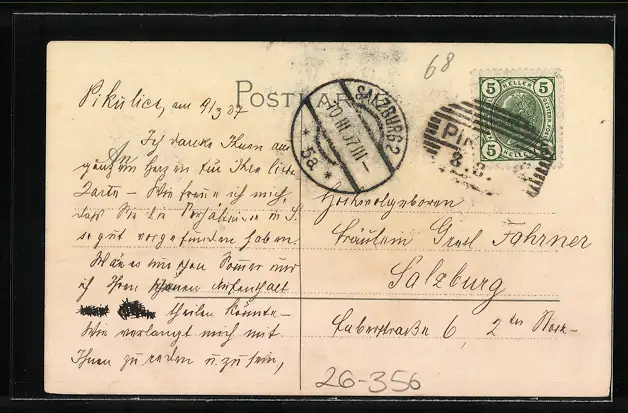 68
POSTKARTE
Pikulice, am 9/3 07
Ich danke Ihnen aus
ganzem Herzen für Ihre liebe
Karte – Wie freue ich mich,
daß Sie die Verhältnisse in S.
so gut vorgefunden haben.
Wäre es nur schon Sommer und
ich Ihren schönen Aufenthalt
theilen könnte –
Wie verlangt mich mit
Ihnen zu reden u. zu sein,
SALZBURG 2
10 III 07 III–
* 5a *
5 HELLER 5
5 5
PIK
8.3
Hochwolgeboren
Fräulein Gretl Fahrner
Salzburg
Faberstraße 6, 2ter Stock–
26-356